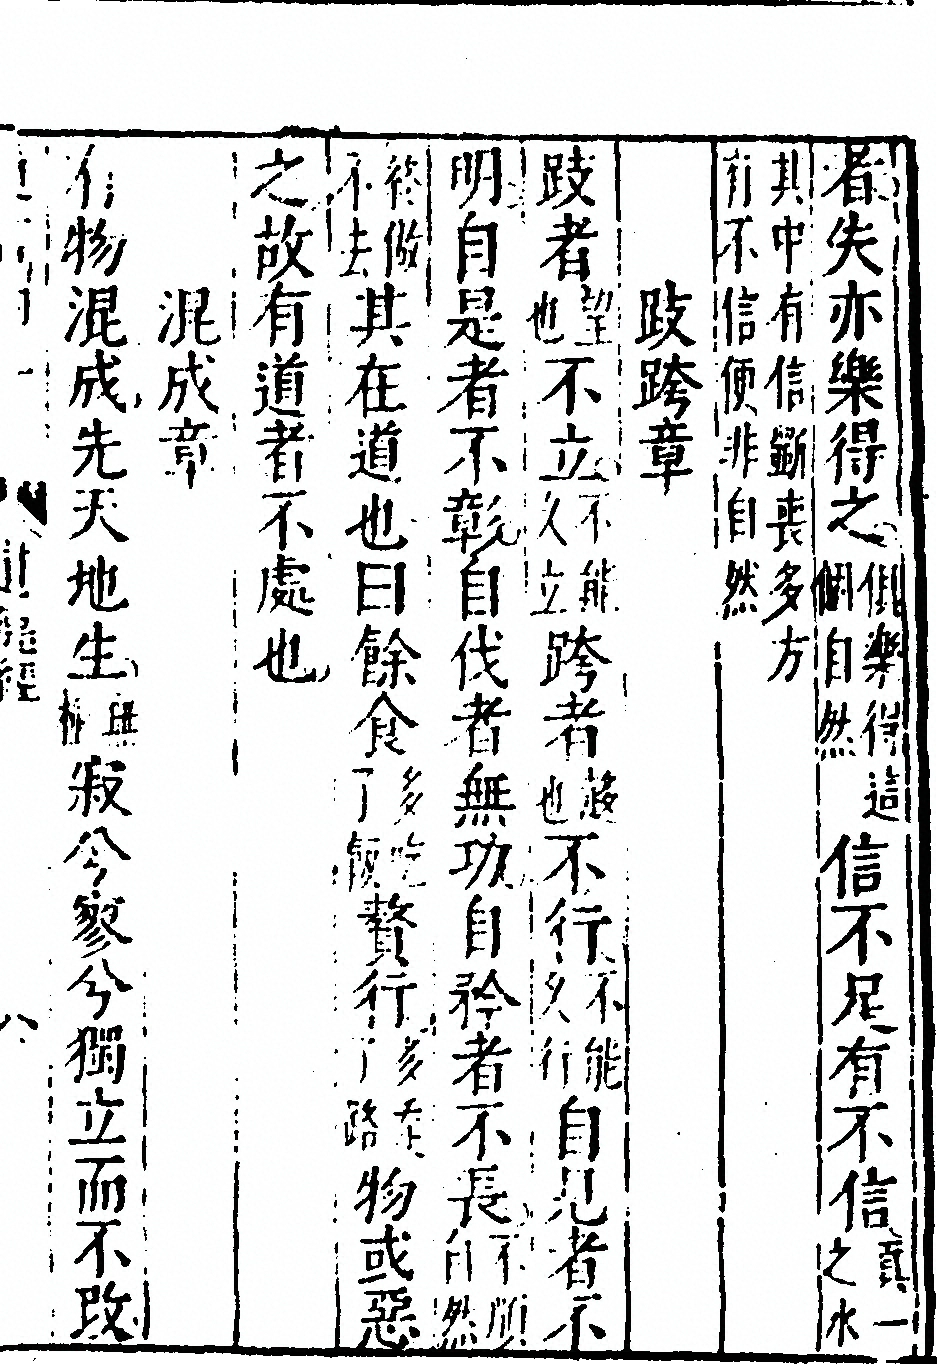 者失亦樂得之俱樂得這個自然信不足有不信真一之水
其中有信斵喪多方有不信便非自然
跂跨章
跂者望也不立不能久立跨者也不行不能久行自見者不
明自是者不彰自伐者無功自矜者不長不順自然
終做不去其在道也曰餘食多吃了便贅行多走了路物或惡
之故有道者不處也
混成章
有物混成先天地生無極寂兮寥兮獨立而不改
經
八